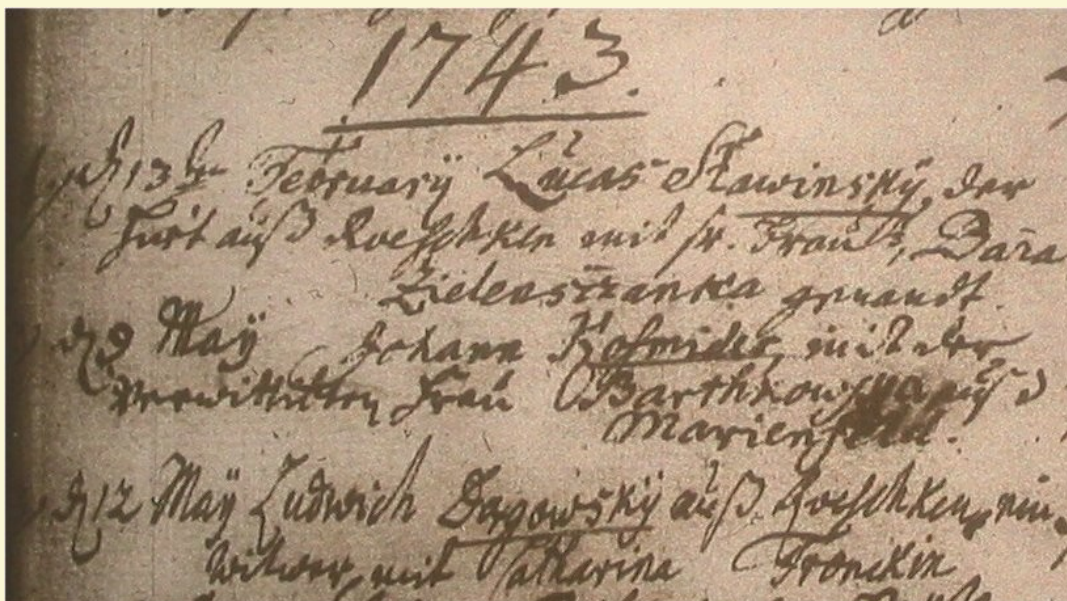 1743.
d 13 ten February Lucas Slawinsky, der
Hirt auß Roeschken mit sr. Frau, Bara
Zielenszanka genandt.
d 9 May Johann Kosmider, mit der
verwittibten Frau Barthkowska auß
Marienfeld.
d 12 May Ludwich Dagowsky auß Roeschken, ein
Witwer, mit Catharina Fronckin